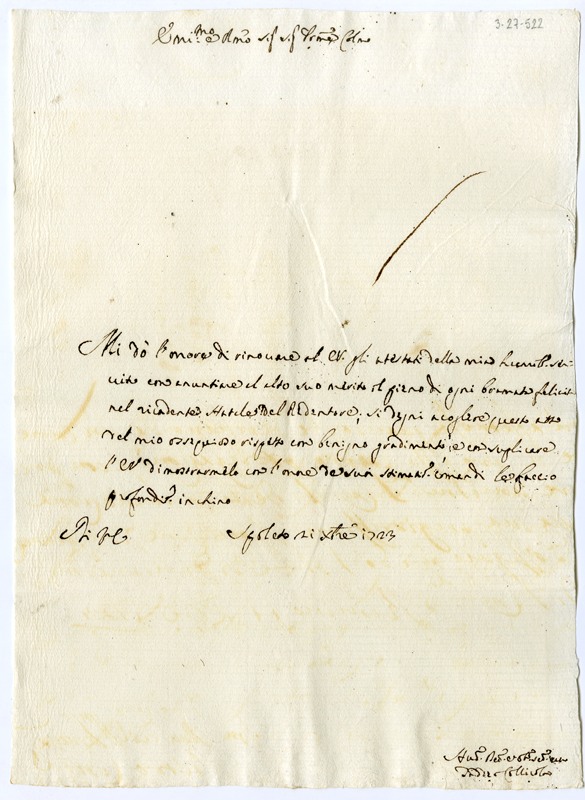 3-27-522
Em.mo e Rmo Sig Sig Prone Colmo
Mi dò l'onore di rinovare al EV. gli attestati della mia humil. ser-
vitù con anuntiare al alto suo merito il pieno di ogni bramata felicità
nel ricadente Natale del Redentore; si degni acogliere questo atto
del mio ossequioso rispetto con benigno gradimento, e con suplicare
l'EV. dimostrarmelo con l'onore de suoi stimat.i comandi le faccio
profondis.o inchino
Di VE Spoleto 21 Xbre 1723